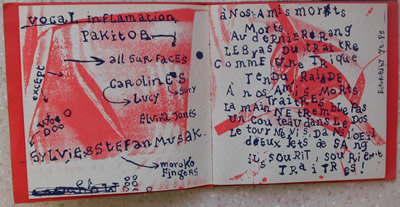 vocal inflamation
PAKITOB
all SURFACES
EXCEPT
CAROLINES
LUCY
SURY
VOO
DOO
Elvia JONES
SYLVIE&STEFAN MUSAK.
moroko
FINGERS
à NOS AMIS MORTS
MORTS
AU DERNIER RANG
LE BRAS DU TRAITRE
COMME UNE TRIQUE
TENDU RAIDE
À NOS AMIS MORTS
TRAITRES
LA MAIN NE TREMBLE PAS
UN COUTEAU DANS LE DOS
LE TOURNEVIS DANS L'OEIL
DEUX JETS DE SANG
ILS SOURIT, SOURIENT
TRAITRES!